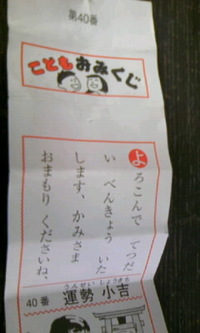 第40番
こどもおみくじ
よろこんで てつだ
い べんきょう いた
します、かみさま
おまもり くださいね、
40番
運勢 小吉
うんせい しょうきち